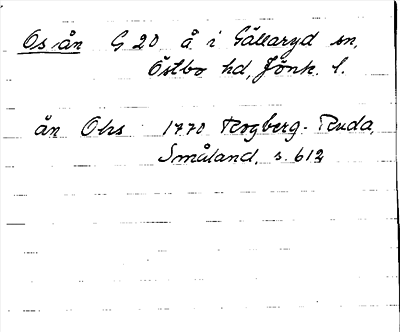 Os ån G 20 å i Gällaryd sn,
Östbo hd, Jönk. l.
ån Ohs 1770 Rogberg-Ruda,
Småland, s. 612